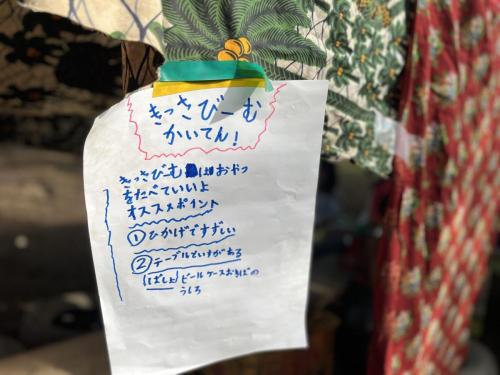 きっさびーむ
かいてん!
きっさびーむはおやつ
をたべていいよ
オススメポイント
①ひかげですずしい
②テーブルといすがある
(ばしょ)ビールケースおきばの
うしろ